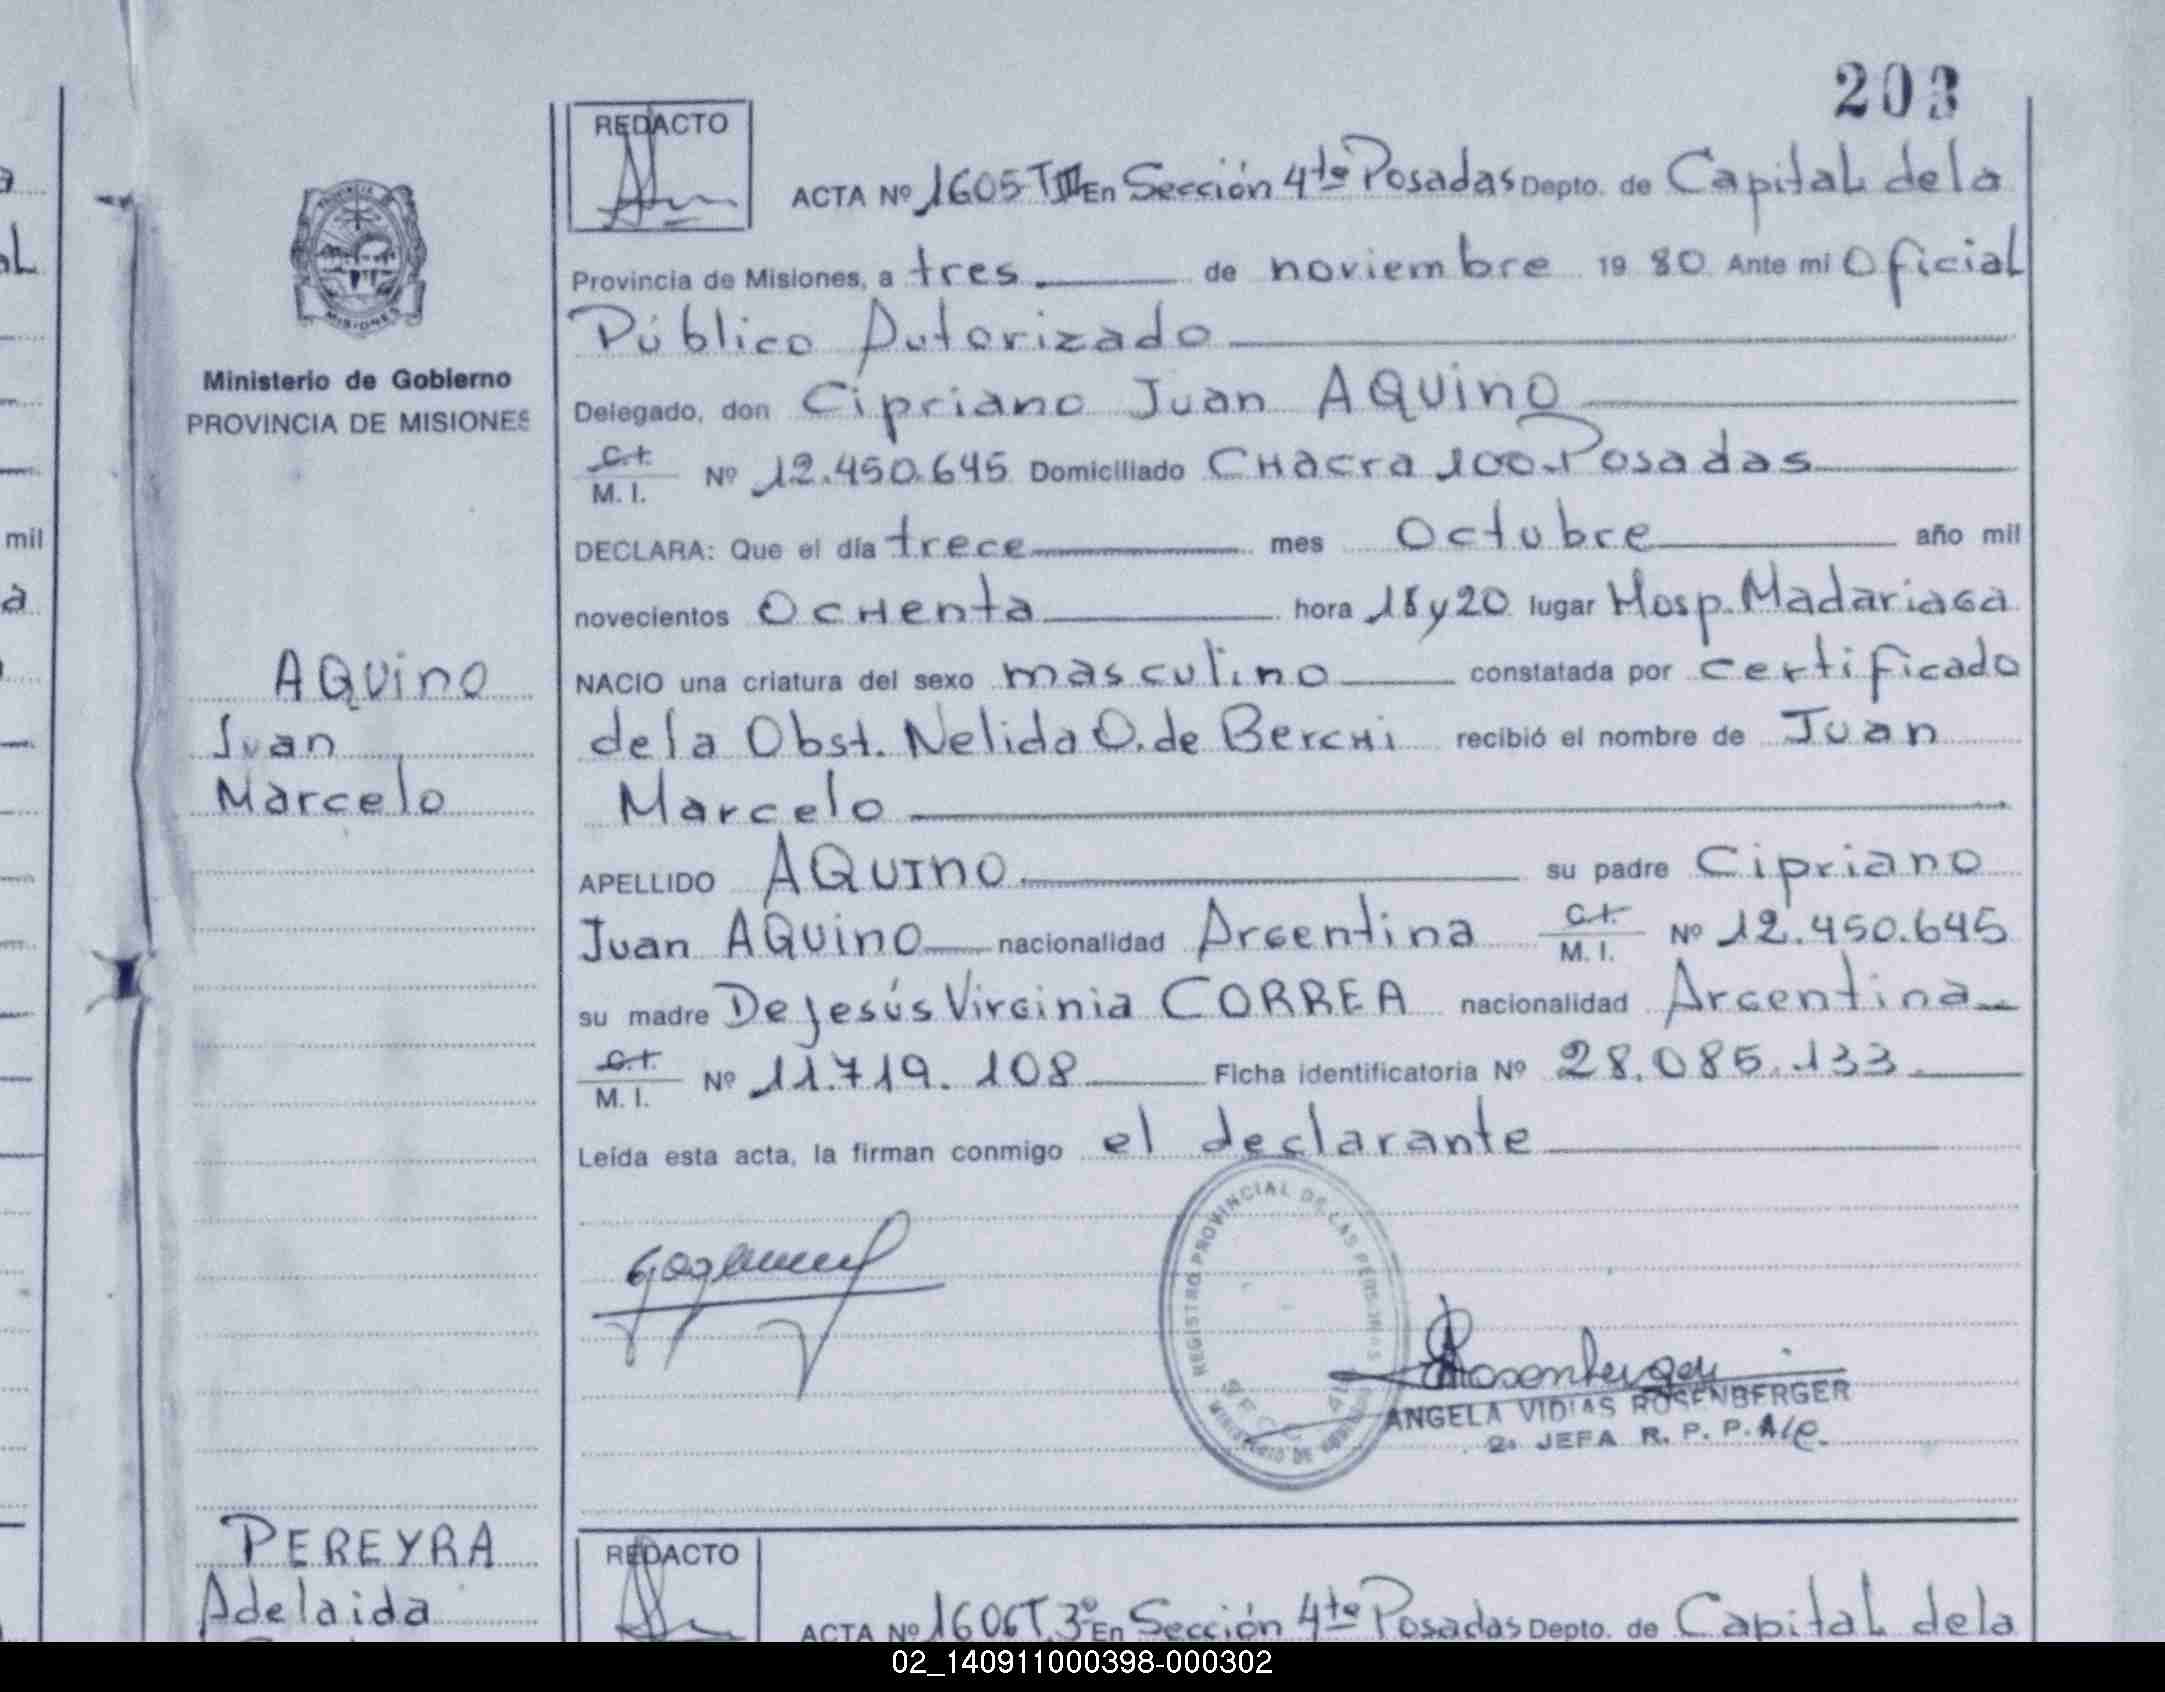 203
REDACTO
ACTA Nº 1605 TIII En Sección 4ta Posadas Depto. de Capital de la
Provincia de Misiones, a tres de noviembre 19 80 Ante mi Oficial
Público Autorizado
Delegado, don Cipriano Juan AQUINO
C.I.
M. I. Nº 12.450.645 Domiciliado CHacra 100-Posadas
DECLARA: Que el día trece mes Octubre año mil
novecientos OCHenta hora 18 y 20 lugar Hosp. Madariaga
NACIO una criatura del sexo masculino constatada por certificado
de la Obst. Nelida O. de BercHi recibió el nombre de Juan
Marcelo
APELLIDO AQUINO su padre Cipriano
Juan AQUINO nacionalidad Argentina C.I.
M. I. Nº 12.450.645
su madre De Jesús Virginia CORREA nacionalidad Argentina
C.I.
M. I. Nº 11.719.108 Ficha identificatoria Nº 28.085.133
Leída esta acta, la firman conmigo el declarante
REGISTRO PROVINCIAL DE LAS PERSONAS
MINISTERIO DE GOBIERNO
Rosenberger
ANGELA VIDIAS ROSENBERGER
2ª JEFA R. P. P. A/C.
PROVINCIA
MISIONES
Ministerio de Gobierno
PROVINCIA DE MISIONES
AQUINO
Juan
Marcelo
PEREYRA
Adelaida
REDACTO
ACTA Nº 1606 T.3º En Sección 4ta Posadas Depto. de Capital de la
mil
02_140911000398-000302